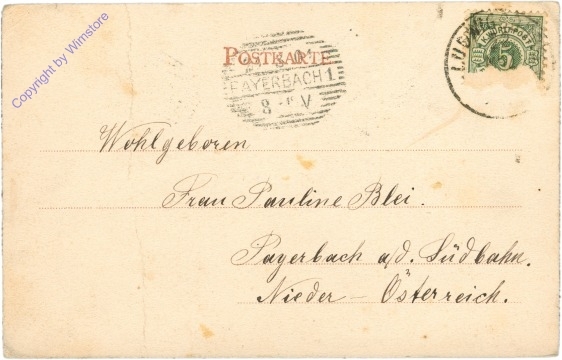 Copyright by Wimstore
POSTKARTE
PAYERBACH 1
8 V
5
Wohlgeboren
Frau Pauline Blei.
Payerbach a/d. Südbahn.
Nieder-Österreich.